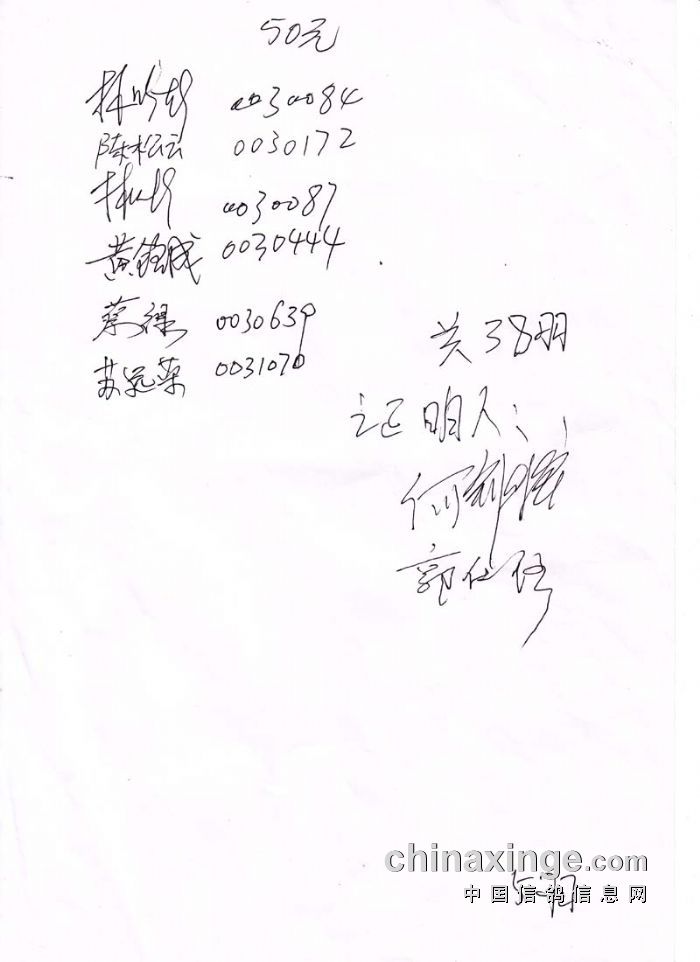 50元
林 0030084
陈松云 0030172
林 0030087
黄 成 0030444
蔡禄 0030639
苏远荣 0031070
共38羽
证明人：
何
郭仕
chinaxinge.com
中国信鸽信息网